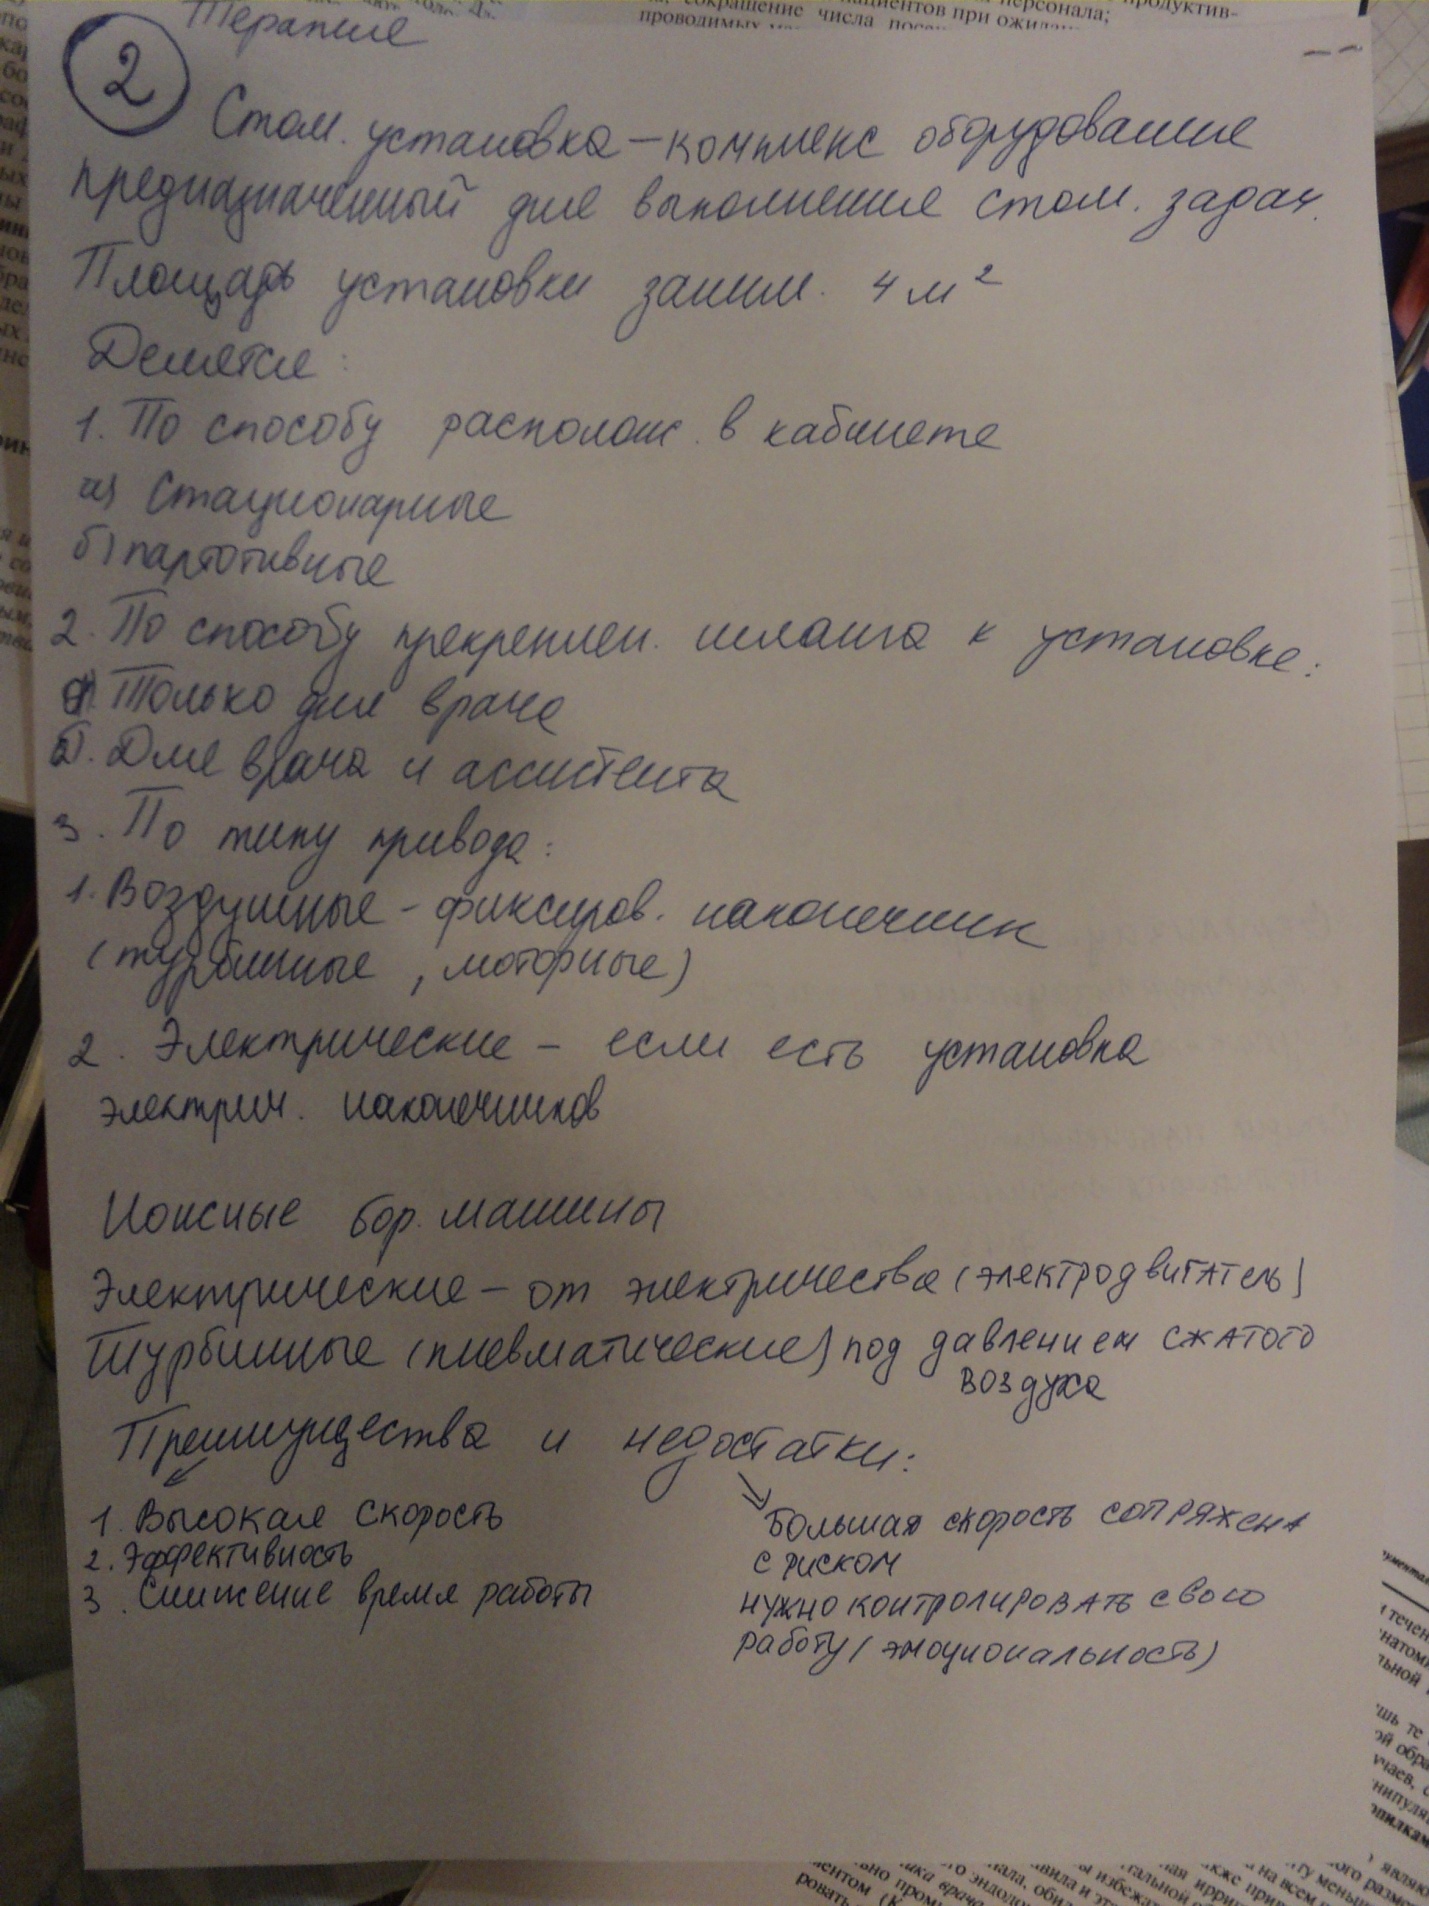 Терапие
2
Стом. установка – комплекс оборудование
предназначенный для выполнение стом. задач.
Площадь установки заним. 4 м²
Делятся:
1. По способу располож. в кабинете
а) Стационарные
б) партотивные
2. По способу прекреплен. шланга к установке:
а) Только для врача
б). Для врача и ассистента
3. По типу привода:
1. Воздушные – фиксиров. наконечник
(турбинные, моторные)
2. Электрические – если есть установка
электрич. наконечников
Ножные бор. машины
Электрические – от электричества (электродвигатель)
Турбинные (пневматические) под давлением сжатого
воздуха
Преимущества и недостатки:
1. Высокая скорость
2. Эффективность
3. Снижение время работы
Большая скорость сопряжена
с риском
нужно контролировать свою
работу (эмоциональность)